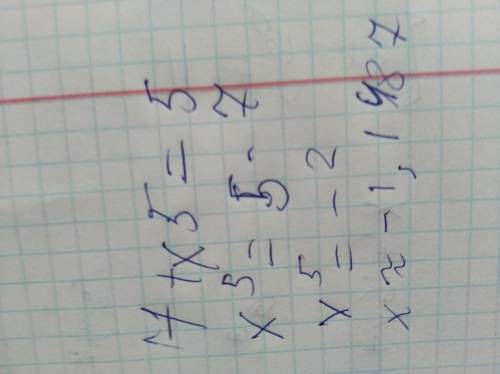 7 + x⁵ = 5
x⁵ = 5 - 7
x⁵ = -2
x ≈ -1,1487